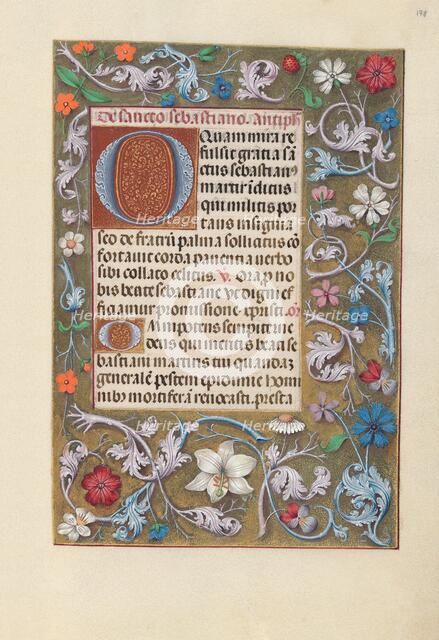 178
De sancto sebastiano. Antiph
O Quam mira re
fulsit gratia sā
ctus sebastianꝰ
martir īclitus
qui militis por
tans insignia
seō de fratrū palma sollicitus cō
fortavit corda paventia verbo
sibi collato celitus. ℣. Ora p no
bis beate sebastiane Vt digni ef
ficiamur promissione xpristi. or̄o
Omnipotens sempiterne
deus qui meritis beati se
bastiani martiris tui quandā
generalē pestem epidimie homi
nibꝰ mortiferā revocasti. presta
Heritage
Heritage
Heritage
Heritage
Heritage
Heritage
Heritage
Heritage